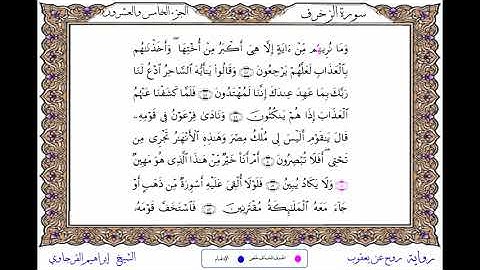 سورة الزخرف
الجزء الخامس والعشرون
وَمَا نُرِيهِم مِّنْ ءَايَةٍ إِلَّا هِىَ أَكْبَرُ مِنْ أُخْتِهَا وَأَخَذْنَٰهُم
بِالْعَذَابِ لَعَلَّهُمْ يَرْجِعُونَ وَقَالُوا يَٰٓأَيُّهَ السَّاحِرُ ادْعُ لَنَا
رَبَّكَ بِمَا عَهِدَ عِندَكَ إِنَّنَا لَمُهْتَدُونَ فَلَمَّا كَشَفْنَا عَنْهُمُ
الْعَذَابَ إِذَا هُمْ يَنكُثُونَ وَنَادَىٰ فِرْعَوْنُ فِى قَوْمِهِۦ
قَالَ يَٰقَوْمِ أَلَيْسَ لِى مُلْكُ مِصْرَ وَهَٰذِهِ الْأَنْهَٰرُ تَجْرِى مِن
تَحْتِى أَفَلَا تُبْصِرُونَ أَمْ أَنَا۠ خَيْرٌ مِّنْ هَٰذَا الَّذِى هُوَ مَهِينٌ
وَلَا يَكَادُ يُبِينُ فَلَوْلَا أُلْقِىَ عَلَيْهِ أَسْوِرَةٌ مِّن ذَهَبٍ أَوْ
جَاءَ مَعَهُ الْمَلَٰٓئِكَةُ مُقْتَرِنِينَ فَاسْتَخَفَّ قَوْمَهُۥ
رواية روح عن يعقوب
الشيخ إبراهيم الفرجاوي